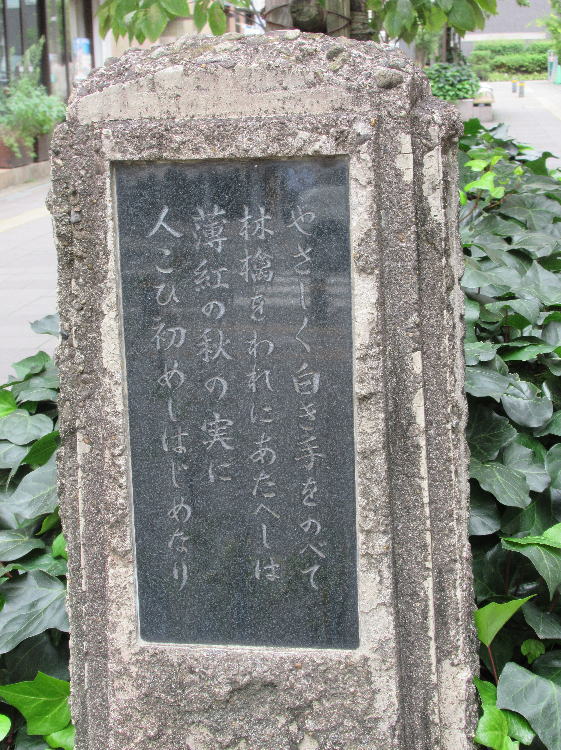 やさしく白き手をのべて
林檎をわれにあたへしは
薄紅の秋の実に
人こひ初めしはじめなり